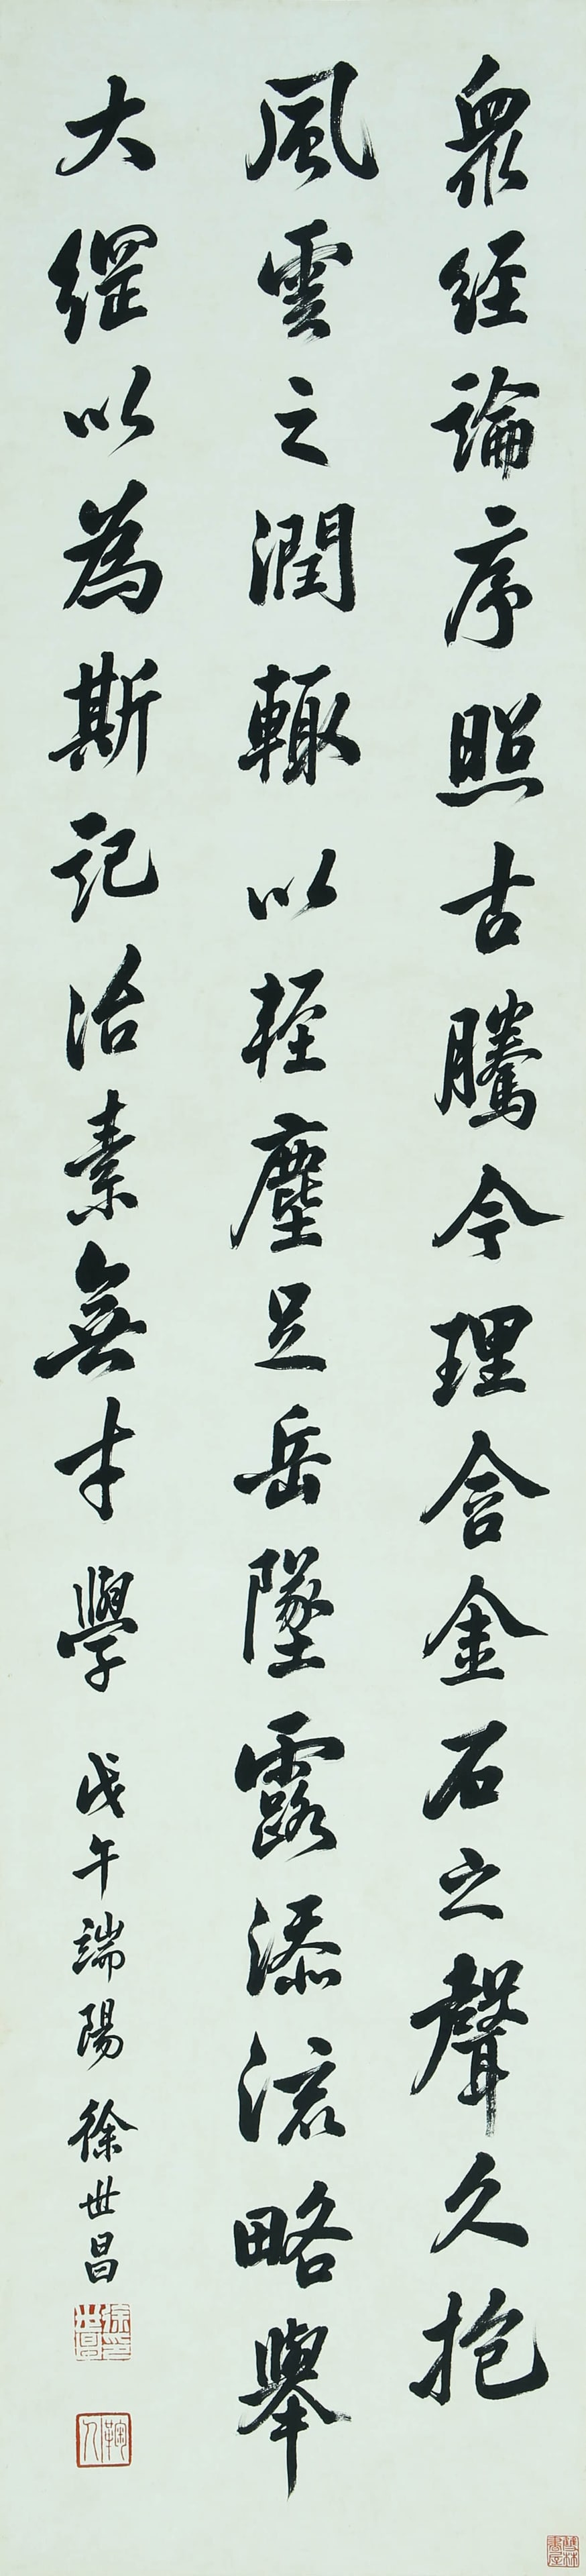 眾經論序照古騰今理含金石之聲久抱
風雲之潤輙以輕塵足岳墜露添流略舉
大綱以為斯記治素無才學 戊午端陽 徐世昌
徐世昌印
鞠人